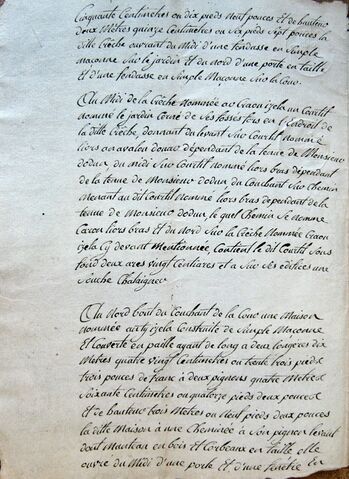 Cinquante Centimetres ou dix pieds Neuf pouces Et de hauteur
deux Mètres quinze Centimetres ou Six pieds Sept pouces la
ditte Crêche ouvrant du Midi d'une fendasse en Simple
maçonne Sur le jardin Et du nord d'une porte en taille
Et d'une fendasse en Simple Maçonne Sur la Cour.
Au Midi de la Crêche Nommée un Courtil
nommé le jardin Cerné de Ses fossés fors En l'Endroit de
la ditte Crêche, donnant du levant Sur Courtil Nommé
liors an avalou dépendant de la tenue de Monsieur
dodun, du midi Sur Courtil Nommé liors bras dépendant
de la tenue de Monsieur dodun du Couchant Sur Chemin
Menant au dit Courtil Nommé liors bras dependant de la
tenue de Monsieur dodun, le quel Chemin Se nomme
liors bras Et du Nord Sur la Crêche Nommée
Cy devant Mentionnée Contient le dit Courtil Sous
fond deux ares vingt Centiares et a Sur Ses édifices une
Souche Chataignier
Au Nord bout du Couchant de la Cour une Maison
nommée Construite de Simple Maçonne
Et Couverte en paille ayant de long a deux longères dix
Metres quatre vingt Centimetres ou trente trois pieds
trois pouces de franc à deux pignons quatre Metres
Soixante Centimetres ou quatorze pieds deux pouces
et de hauteur trois Mètres ou Neuf pieds deux pouces
la ditte Maison a une Cheminée a Son pignon levant
dont Manteau en bois Et Corbeaux en Taille elle
ouvre du Midi d'une porte et d'une fenêtre En